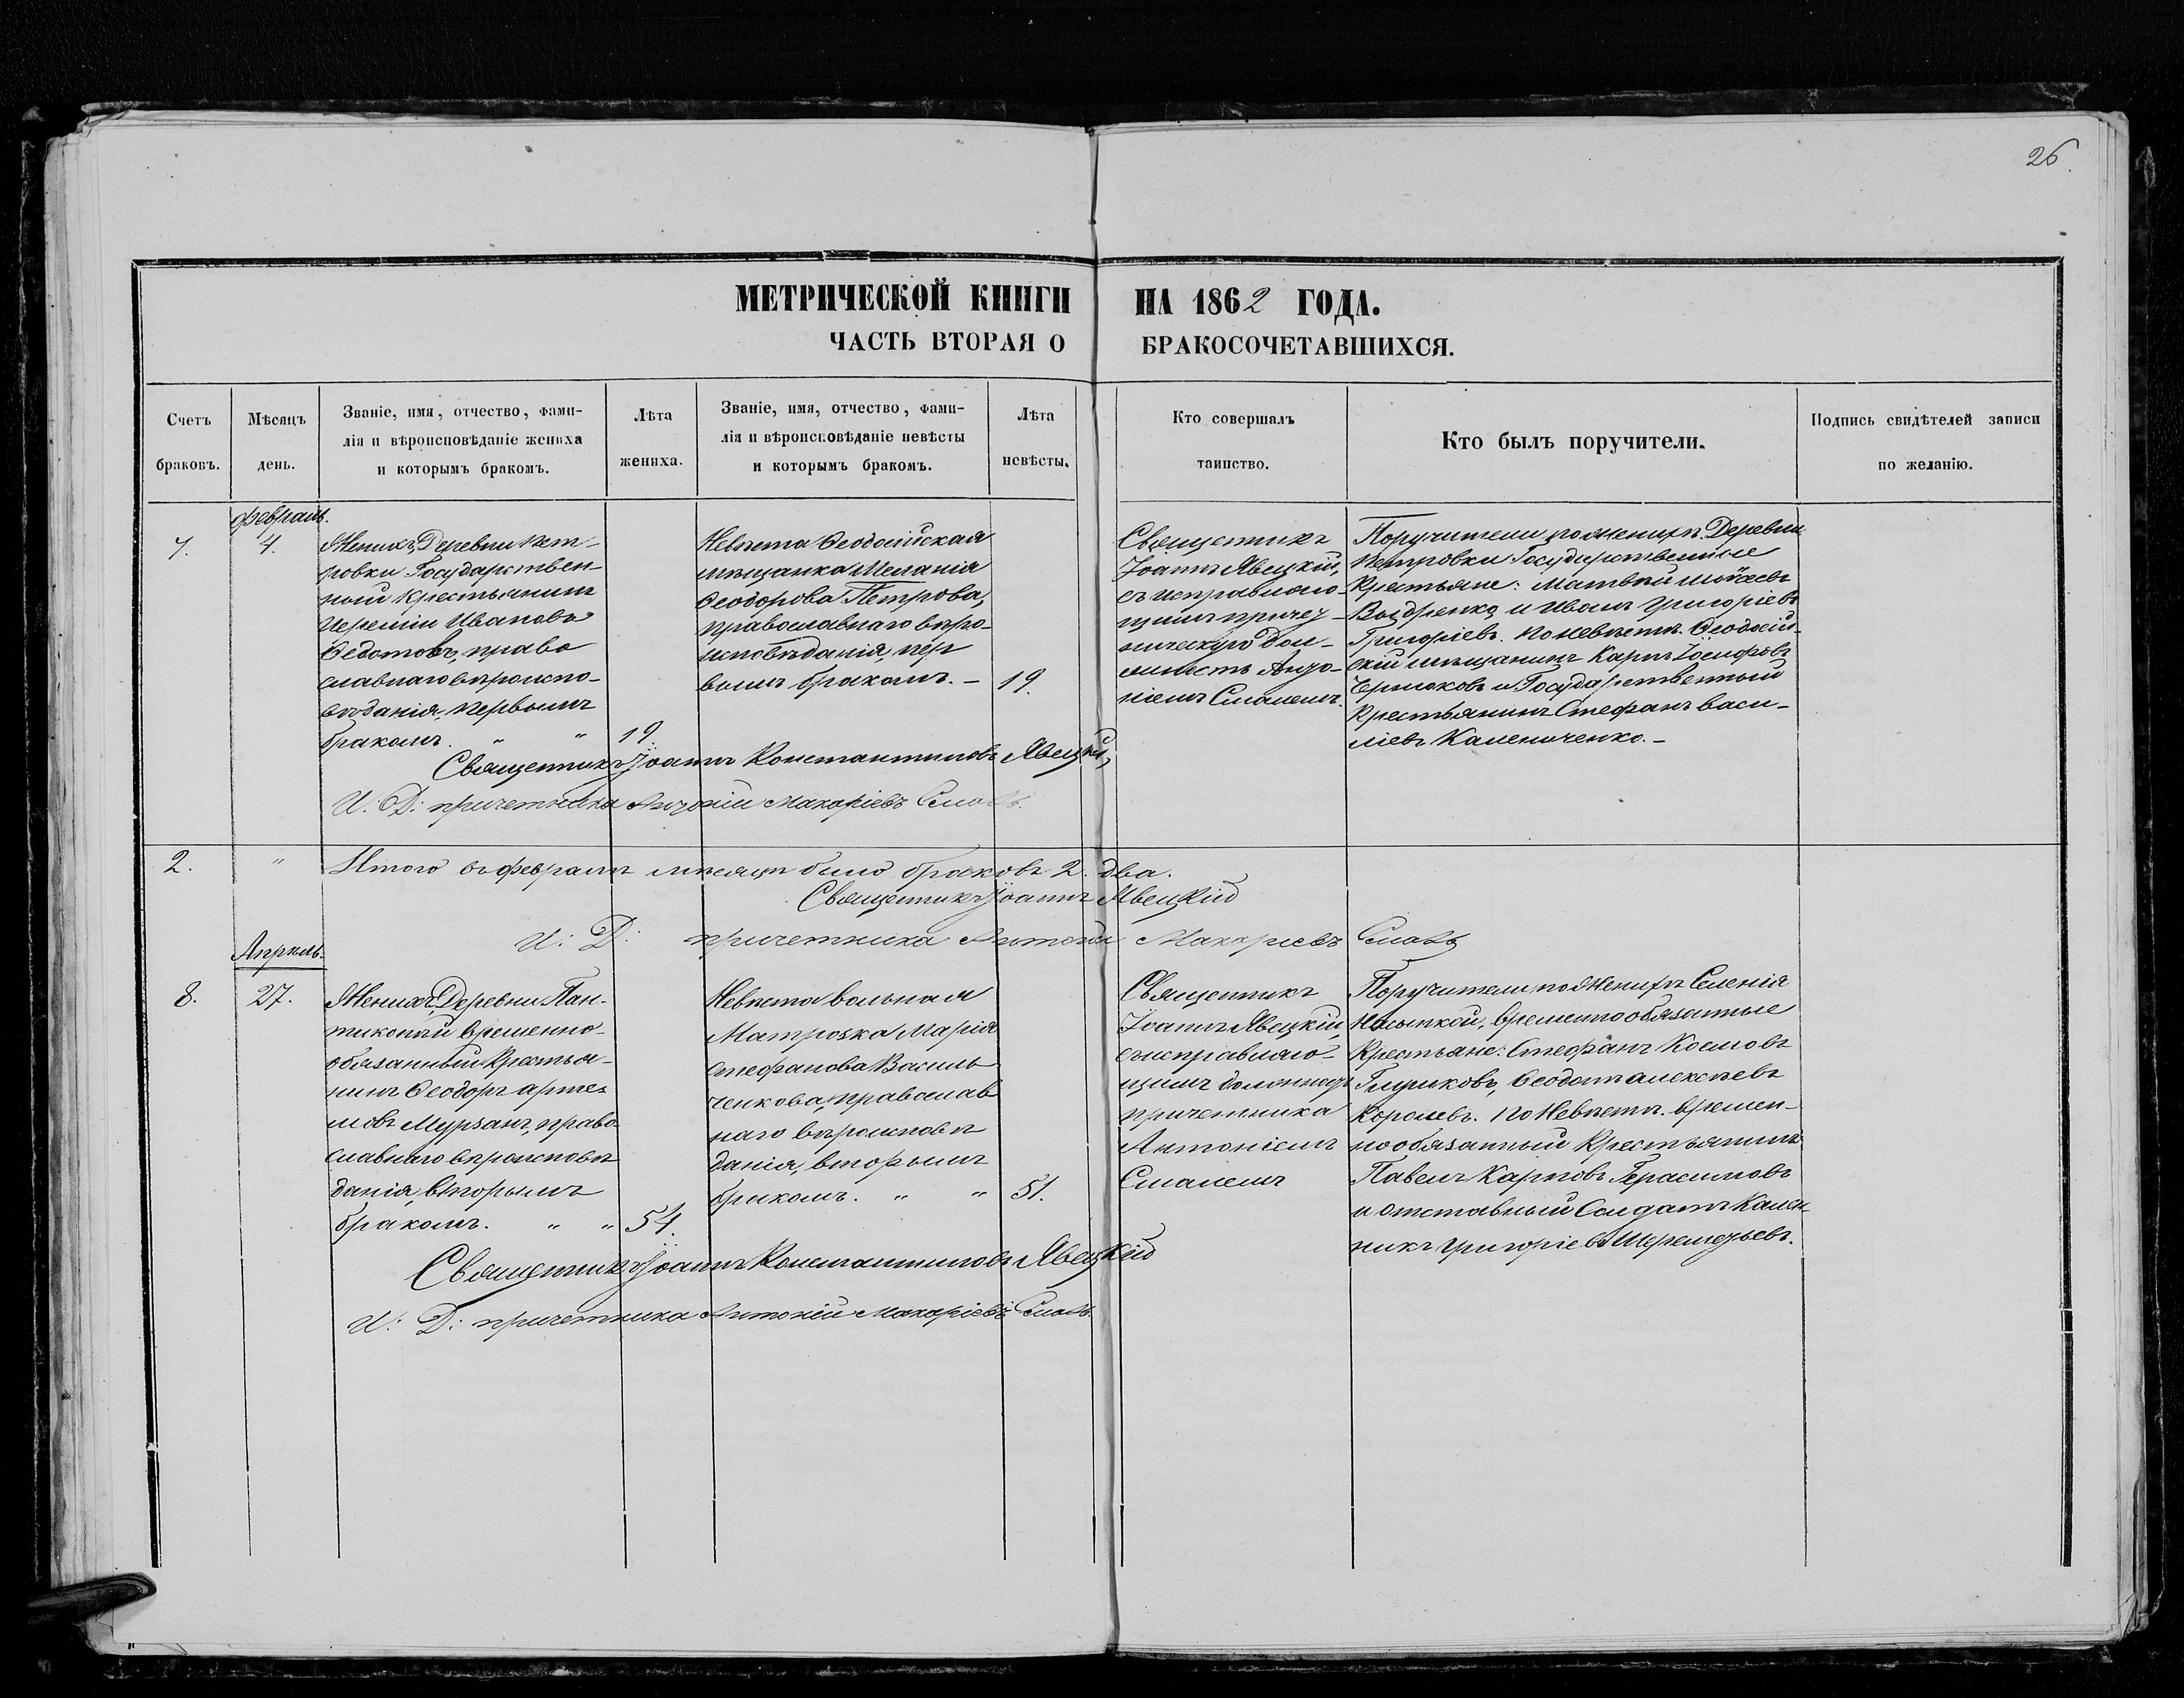 26.
МЕТРИЧЕСКОЙ КНИГИ НА 1862 ГОДА.
ЧАСТЬ ВТОРАЯ О БРАКОСОЧЕТАВШИХСЯ.
Счетъ браковъ.
Мѣсяцъ день.
Званіе, имя, отчество, фами-
лія и вѣроисповѣданіе жениха
и которымъ бракомъ.
Лѣта
жениха.
Званіе, имя, отчество, фами-
лія и вѣроисповѣданіе невѣсты
и которымъ бракомъ.
Лѣта
невѣсты.
Кто совершалъ
таинство.
Кто былъ поручители.
Подпись свидѣтелей записи
по желанію.
февраль.
7.
4.
Женихъ, Деревни Пет-
ровки Государствен-
ный Крестьянинъ
Ивановъ
Ѳедотовъ, право
славнаго вѣроиспо-
вѣданія, первымъ
бракомъ. " "
19.
Невѣста Ѳеодосійская
мѣщанка Меланія
Ѳеодорова Петрова,
православнаго вѣро-
исповѣданія, пер
вымъ бракомъ. –
19.
Священникъ
Іоаннъ Явецкій,
съ исправляю-
щимъ
ническую дол-
жность
ніемъ
Поручители по женихѣ: Деревни
Петровки Государственные
Крестьяне: Матвѣй
и Иванъ Григоріевъ
Григоріевъ. По невѣстѣ. Ѳеодосій-
скій мѣщанинъ Карпъ Іосифовъ
и Государственный
Крестьянинъ Стефанъ Васи-
ліевъ Калениченко. –
Священникъ Іоаннъ Константиновъ Явецкій,
И: Д: причетника Макаріевъ
2.
"
Итого въ февралѣ мѣсяцѣ было браковъ 2. два.
Священникъ Іоаннъ Явецкій
И: Д: причетника Антоній Макаріевъ
Апрѣль.
8.
27.
Женихъ, Деревни Пан-
временно-
обязанный Крестья-
нинъ Ѳеодоръ Арте-
мовъ Мурзакъ, право
славнаго вѣроисповѣ
данія, вторымъ
бракомъ. " "
54.
Невѣста вольная
Матроска Марія
Стефанова Василь
ченкова, православ
наго вѣроисповѣ
данія, вторымъ
бракомъ. " "
51.
Священникъ
Іоаннъ Явецкій,
съ исправляю-
щимъ должность
причетника
Антоніемъ
Поручители по Женихѣ: Селенія
Насыпкой, временнообязанные
Крестьяне: Стефанъ Космовъ
Ѳеодотъ Алексѣевъ
Королевъ. По Невѣстѣ. времен-
нообязанный Крестьянинъ
Павелъ Карповъ Герасимовъ
и отставный Солдатъ Кален-
никъ Григоріевъ
Священникъ Іоаннъ Константиновъ Явецкій
И: Д: причетника Антоній Макаріевъ